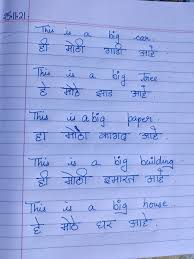 25-11-21
This is a big car.
ही मोठी गाडी आहे.
This is a big tree
हे मोठे झाड आहे.
This is a big paper.
हा मोठा कागद आहे.
This is a big building
ही मोठी इमारत आहे.
This is a big house.
हे मोठे घर आहे.